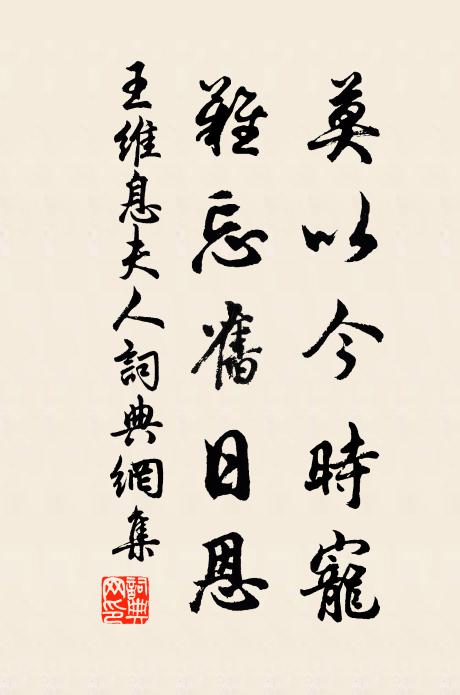 莫以今時寵
難忘舊日恩
王維息夫人詞典網集
詞典網印